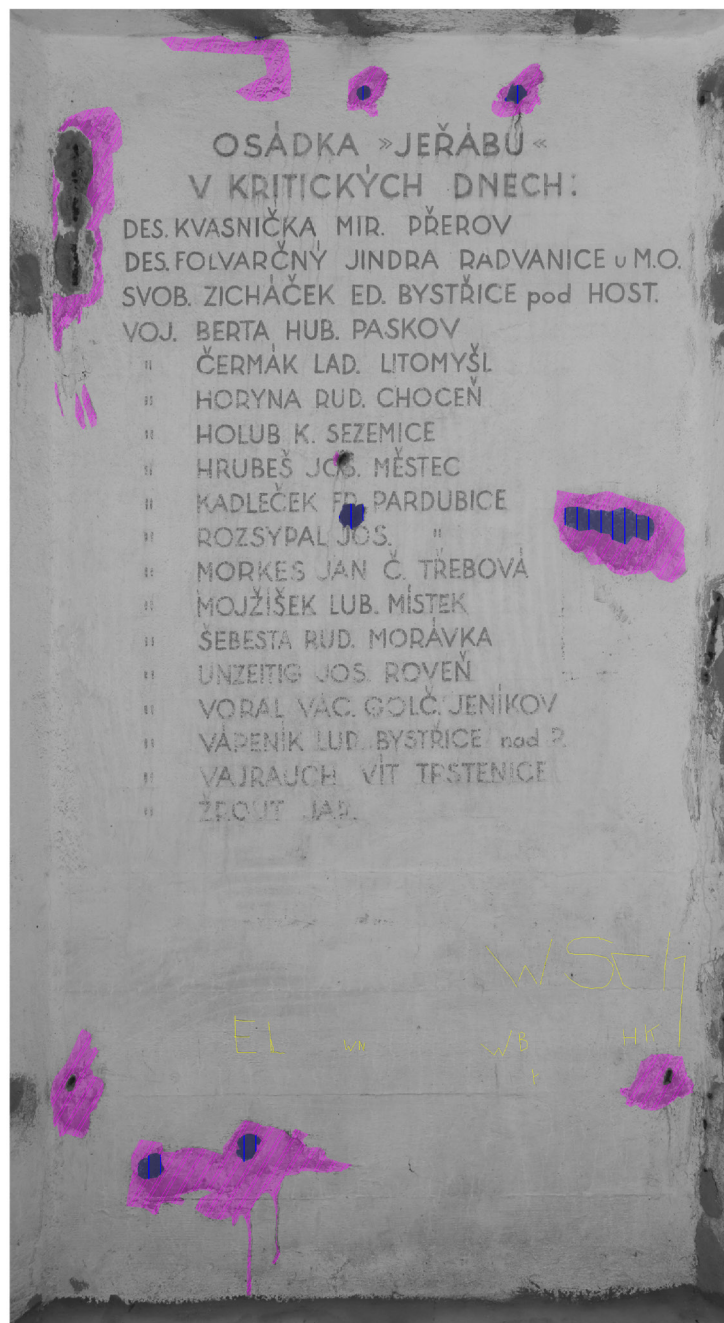 OSÁDKA »JEŘÁBU«
V KRITICKÝCH DNECH:
DES. KVASNIČKA MIR. PŘEROV
DES. FOLVARČNÝ JINDRA RADVANICE u M.O.
SVOB. ZICHÁČEK ED. BYSTŘICE pod HOST.
VOJ. BERTA HUB. PASKOV
" ČERMÁK LAD. LITOMYŠL
" HORYNA RUD. CHOCEŇ
" HOLUB K. SEZEMICE
" HRUBEŠ JOS. MĚSTEC
" KADLEČEK FR. PARDUBICE
" ROZSYPAL JOS. "
" MORKES JAN Č. TŘEBOVÁ
" MOJŽÍŠEK LUB. MÍSTEK
" ŠEBESTA RUD. MORÁVKA
" UNZEITIG JOS. ROVEŇ
" VORAL VÁC. GOLČ. JENÍKOV
" VÁPENÍK LUD. BYSTŘICE nad P.
" VAJRAUCH VÍT TRSTENICE
" ŽROUT JAR.
W Sch
EL WN WB HK